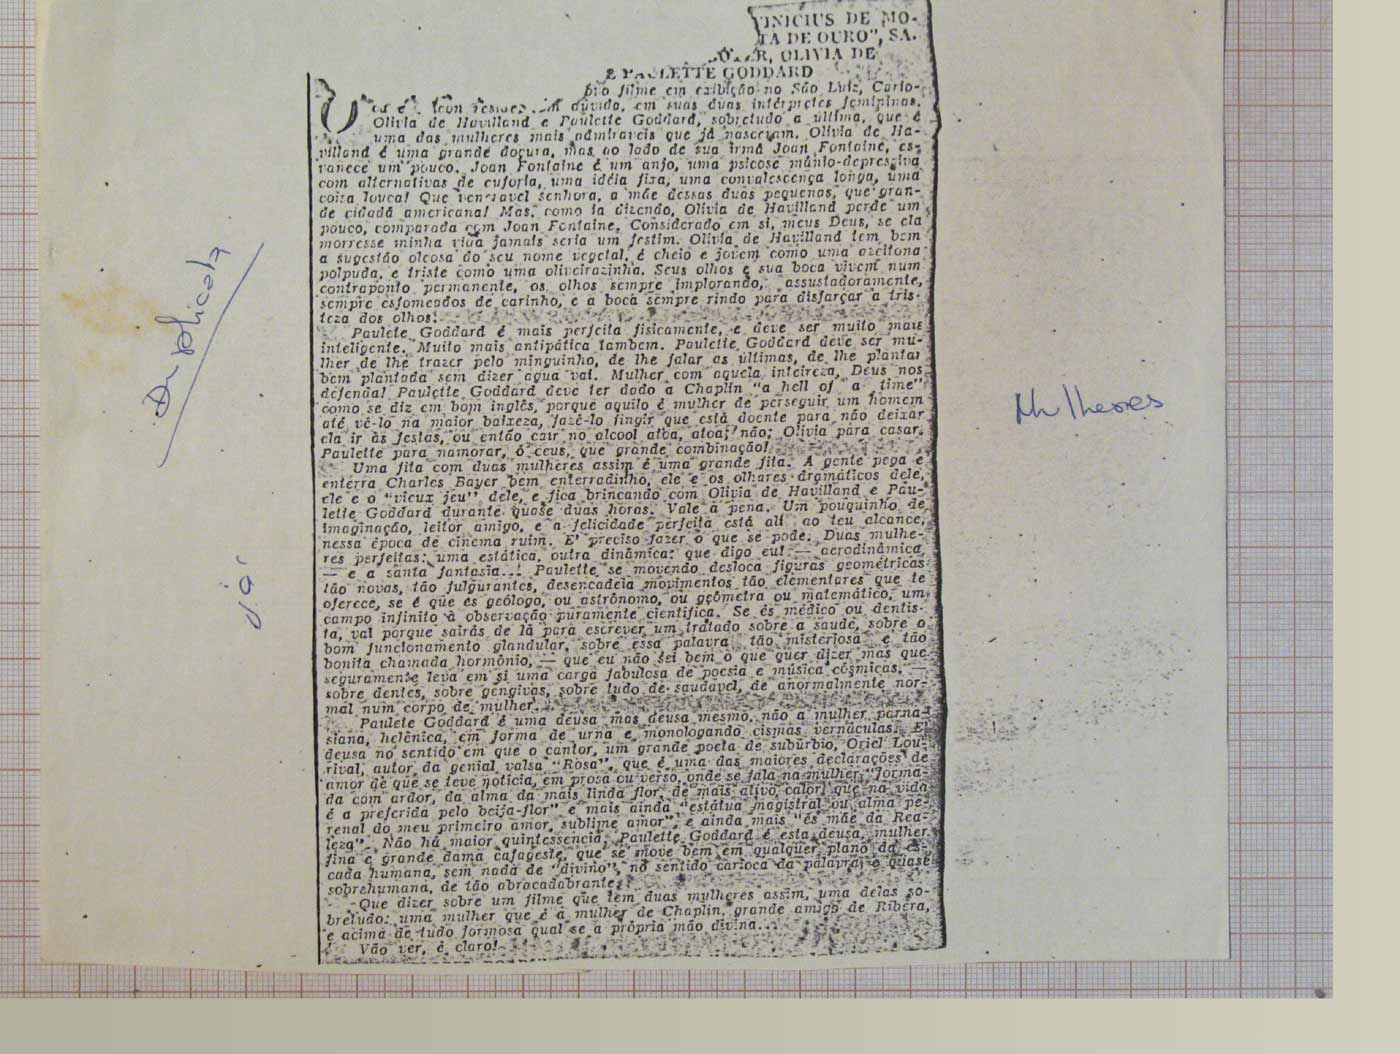 VINICIUS DE MO-
TA DE OURO", SA.
OLIVIA DE
E PAULETTE GODDARD
filme em exibição no São Luiz, Cario-
dúvida, em suas duas intérpretes femininas,
Olivia de Havilland e Paulette Goddard, sobretudo a última, que é
uma das mulheres mais admiraveis que já nasceram. Olivia de Ha-
villand é uma grande doçura, mas ao lado de sua irmã Joan Fontaine, es-
vanece um pouco. Joan Fontaine é um anjo, uma psicose mânio-depressiva
com alternativas de euforia, uma idéia fixa, uma convalescença longa, uma
coisa louca! Que veneravel senhora, a mãe dessas duas pequenas, que gran-
de cidadã americana! Mas, como ia dizendo, Olivia de Havilland perde um
pouco, comparada com Joan Fontaine. Considerado em si, meus Deus, se ela
morresse minha vida jamais seria um festim. Olivia de Havilland tem bem
a sugestão oleosa do seu nome vegetal, é cheio e jovem como uma azeitona
polpuda, e triste como uma oliveirazinha. Seus olhos e sua boca vivem num
contraponto permanente, os olhos sempre implorando, assustadoramente,
sempre esfomeados de carinho, e a boca sempre rindo para disfarçar a tris-
teza dos olhos.
Paulete Goddard é mais perfeita fisicamente, e deve ser muito mais
inteligente. Muito mais antipática tambem. Paulette Goddard deve ser mu-
lher de lhe trazer pelo minguinho, de lhe falar as últimas, de lhe plantar
bem plantada sem dizer agua vai. Mulher com aquela inteireza, Deus nos
defenda! Paulette Goddard deve ter dado a Chaplin "a hell of a time"
como se diz em bom inglês, porque aquilo é mulher de perseguir um homem
até vê-lo na maior baixeza, fazê-lo fingir que está doente para não deixar
ela ir às festas, ou então cair no alcool atoa, atoa, não; Olivia para casar,
Paulette para namorar, ó ceus, que grande combinação!
Uma fita com duas mulheres assim é uma grande fita. A gente pega e
enterra Charles Bayer bem enterradinho, ele e os olhares dramáticos dele,
ele e o "vieux jeu" dele, e fica brincando com Olivia de Havilland e Pau-
lette Goddard durante quase duas horas. Vale a pena. Um pouquinho de
imaginação, leitor amigo, e a felicidade perfeita está ali ao teu alcance,
nessa época de cinema ruim. E' preciso fazer o que se pode. Duas mulhe-
res perfeitas: uma estática, outra dinâmica: que digo eu! — aerodinâmica,
— e a santa fantasia... Paulette se movendo desloca figuras geométricas
tão novas, tão fulgurantes, desencadeia movimentos tão elementares que te
oferece, se é que és geólogo, ou astrônomo, ou geômetra ou matemático, um
campo infinito à observação puramente cientifica. Se és médico ou dentis-
ta, vai porque sairás de lá para escrever um tratado sobre a saude, sobre o
bom funcionamento glandular, sobre essa palavra tão misteriosa e tão
bonita chamada hormônio, — que eu não sei bem o que quer dizer mas que
seguramente leva em si uma carga fabulosa de poesia e música cósmicas. —
sobre dentes, sobre gengivas, sobre tudo de saudavel, de anormalmente nor-
mal num corpo de mulher.
Paulete Goddard é uma deusa mas deusa mesmo, não a mulher parna-
siana, helênica, em forma de urna e monologando cismas vernáculas. E'
deusa no sentido em que o cantor, um grande poeta de subúrbio, Oriel Lou-
rival, autor da genial valsa "Rosa", que é uma das maiores declarações de
amor de que se teve notícia, em prosa ou verso, onde se fala na mulher "forma-
da com ardor, da alma da mais linda flor, de mais ativo calor, que na vida
é a preferida pelo beija-flor" e mais ainda "estátua magistral ou alma pe-
renal do meu primeiro amor, sublime amor", e ainda mais "és mãe da Rea-
leza". Não há maior quintessencia, Paulette Goddard é esta deusa, mulher
fina e grande dama cafageste, que se move bem em qualquer plano da es-
cada humana, sem nada de "divino", no sentido carioca da palavra, e quase
sobrehumana, de tão abracadabrante.
Que dizer sobre um filme que tem duas mulheres assim, uma delas so-
bretudo: uma mulher que é a mulher de Chaplin, grande amigo de Ribera,
e acima de tudo formosa qual se a própria mão divina...
Vão ver, é claro!
Duplicata
Mulheres